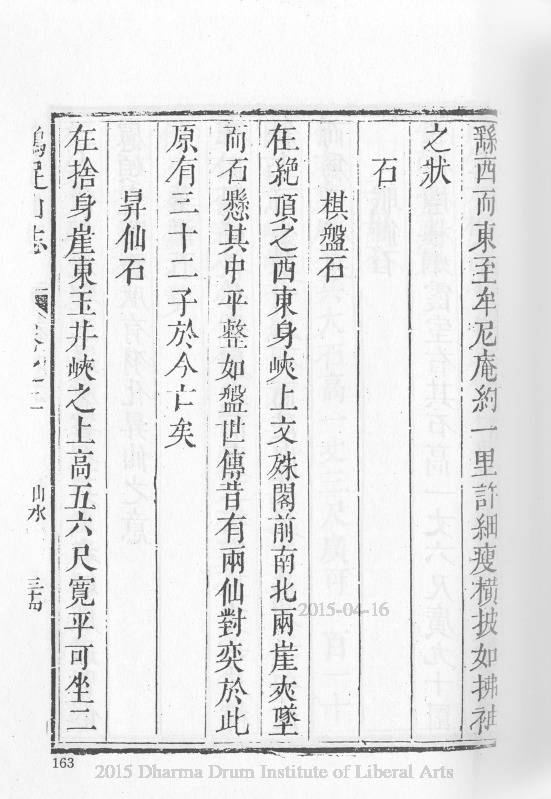 繇西而東至牟尼庵約一里許細瘦橫披如拂袖
之狀
石
棋盤石
在絶頂之西東身峽上文殊閣前南北兩崖夾墜
而石懸其中平整如盤世傳昔有兩仙對奕於此
原有三十二子於今亡矣
昇仙石
在捨身崖東玉井峽之上高五六尺寬平可坐二
山水
三十四
163
2015-04-16
2015 Dharma Drum Institute of Liberal Arts